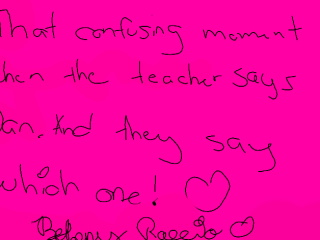 That confusing moment
when the teacher says
Dan. And they say
which one! ♡